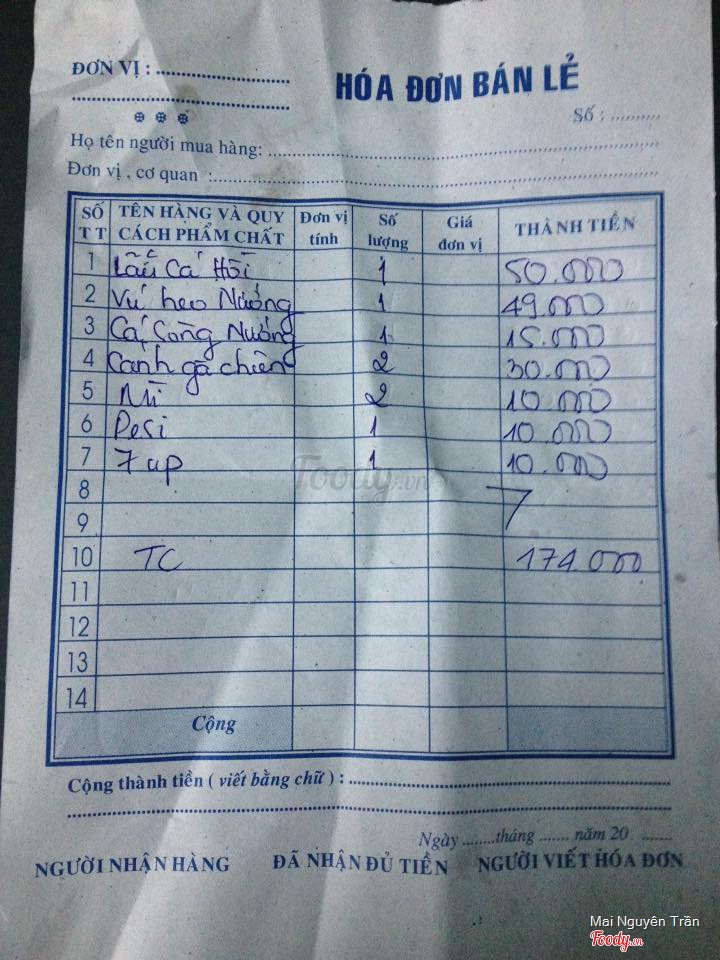 ĐƠN VỊ : ........................
HÓA ĐƠN BÁN LẺ
Số : ..........
Họ tên người mua hàng: ........................
Đơn vị , cơ quan :........................
SỐ TT TÊN HÀNG VÀ QUY CÁCH PHẨM CHẤT Đơn vị tính Số lượng Giá đơn vị THÀNH TIỀN
1 Lẩu Cá Hồi 1 50.000
2 Vú heo Nướng 1 49.000
3 Cá Sòng Nướng 1 15.000
4 Canh gà chiên 2 30.000
5 Mì 2 10.000
6 Pesi 1 10.000
7 7 up 1 10.000
Foody.vn
8 7
9
10 TC 174.000
11
12
13
14
Cộng
Cộng thành tiền ( viết bằng chữ ) : ........................
Ngày ........tháng ....... năm 20 ......
NGƯỜI NHẬN HÀNG ĐÃ NHẬN ĐỦ TIỀN NGƯỜI VIẾT HÓA ĐƠN
Mai Nguyên Trần
Foody.vn